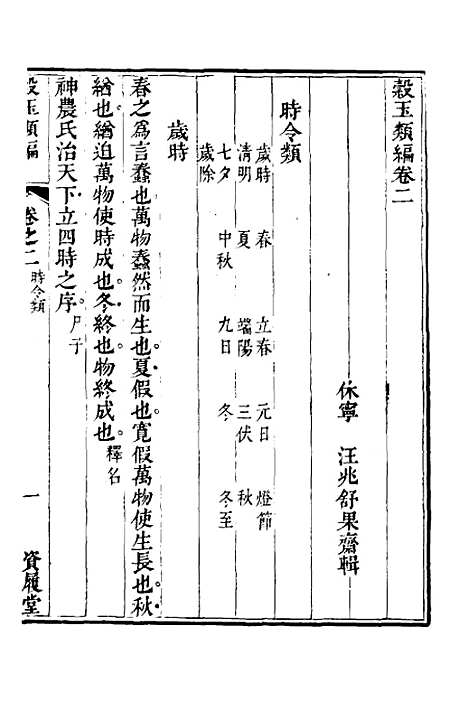 穀玉類編卷二
休寧 汪兆舒果齋輯
時令類
歲時 春 立春 元日 燈節
清明 夏 端陽 三伏 秋
七夕 中秋 九日 冬 冬至
歲除
歲時
春之為言蠢也萬物蠢然而生也。夏假也。寬假萬物使生長也。秋
緧也。緧迫萬物使時成也。冬終也。物終成也。釋名
神農氏治天下立四時之序。尸子
穀玉類編 卷之二 時令類 一 資履堂